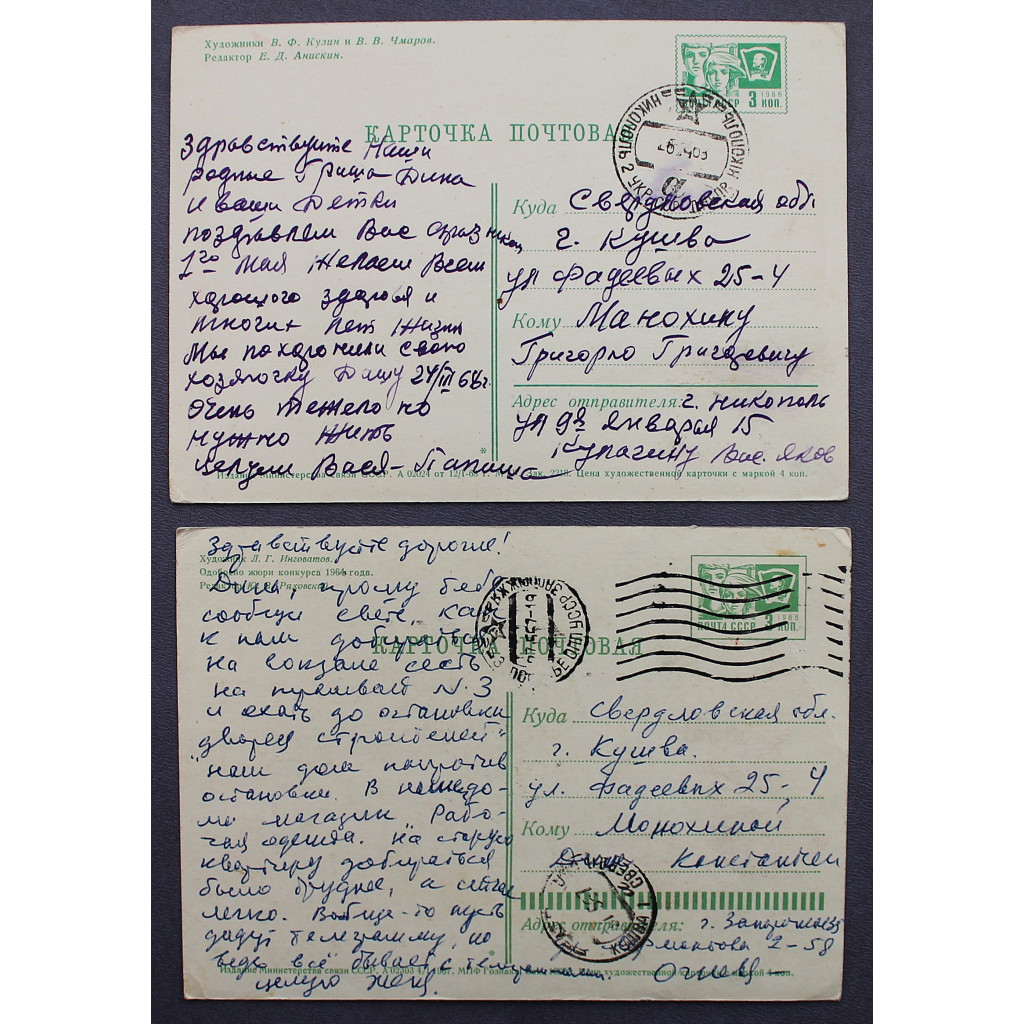 Художники В. Ф. Кузин и В. В. Чмаров.
Редактор Е. Д. Анискин.
1966
ПОЧТА СССР 3 КОП.
КАРТОЧКА ПОЧТОВАЯ
НИКОПОЛЬ 2 УКР
Здравствуите Наши
родные Гриша Дина
и ваши Детки
поздравлем Вас
1го Мая Желаем Всем
хорошого здоровя и
многих лет жизни
Мы похоронили свою
хозяючку Дашу 24/III 68г.
Очень тежело но
нужно жить
целуем Вася - Папаша
Куда Свердловская обл
г. Кушва
ул Фадеевых 25-4
Кому Манохину
Григорю Григоревичу
Адрес отправителя: г. Никополь
ул 9го Января 15
Кулагину Вас. Яков
Издание Министерства связи СССР. А 02024 от 12/I-68 г. Зак. 2219. Цена художественной карточки с маркой 4 коп.
Здравствуйте дорогие!
Художник Л. Г. Инговатов.
Одобрено жюри конкурса 1966 года.
Редактор Ряховский
Дина прошу тебя
сообщи свете, как
к нам добраться
на вокзале сесть
на трамвай N. 3
и ехать до остановки
"дворец строителей"
наш дом напротив
остановки. В нашем до-
ме магазин "Рабо-
чая одежда. На старую
квартиру добираться
было труднее, а сейчас
легко. Вообще-то пусть
дадут телеграмму, но
ведь всё бывает с телеграммами.
целую Женя.
1966
ПОЧТА СССР 3 КОП.
КАРТОЧКА ПОЧТОВАЯ
Куда Свердловская обл.
г. Кушва.
ул. Фадеевых 25-4
Кому Монохиной
Дине Константин
КУШВА 1 СВЕРДЛ
Адрес отправителя: г. Запорожье
2-58
Издание Министерства связи СССР. А 02303 1967. МПФ Гознака. художественной карточки с маркой 4 коп.